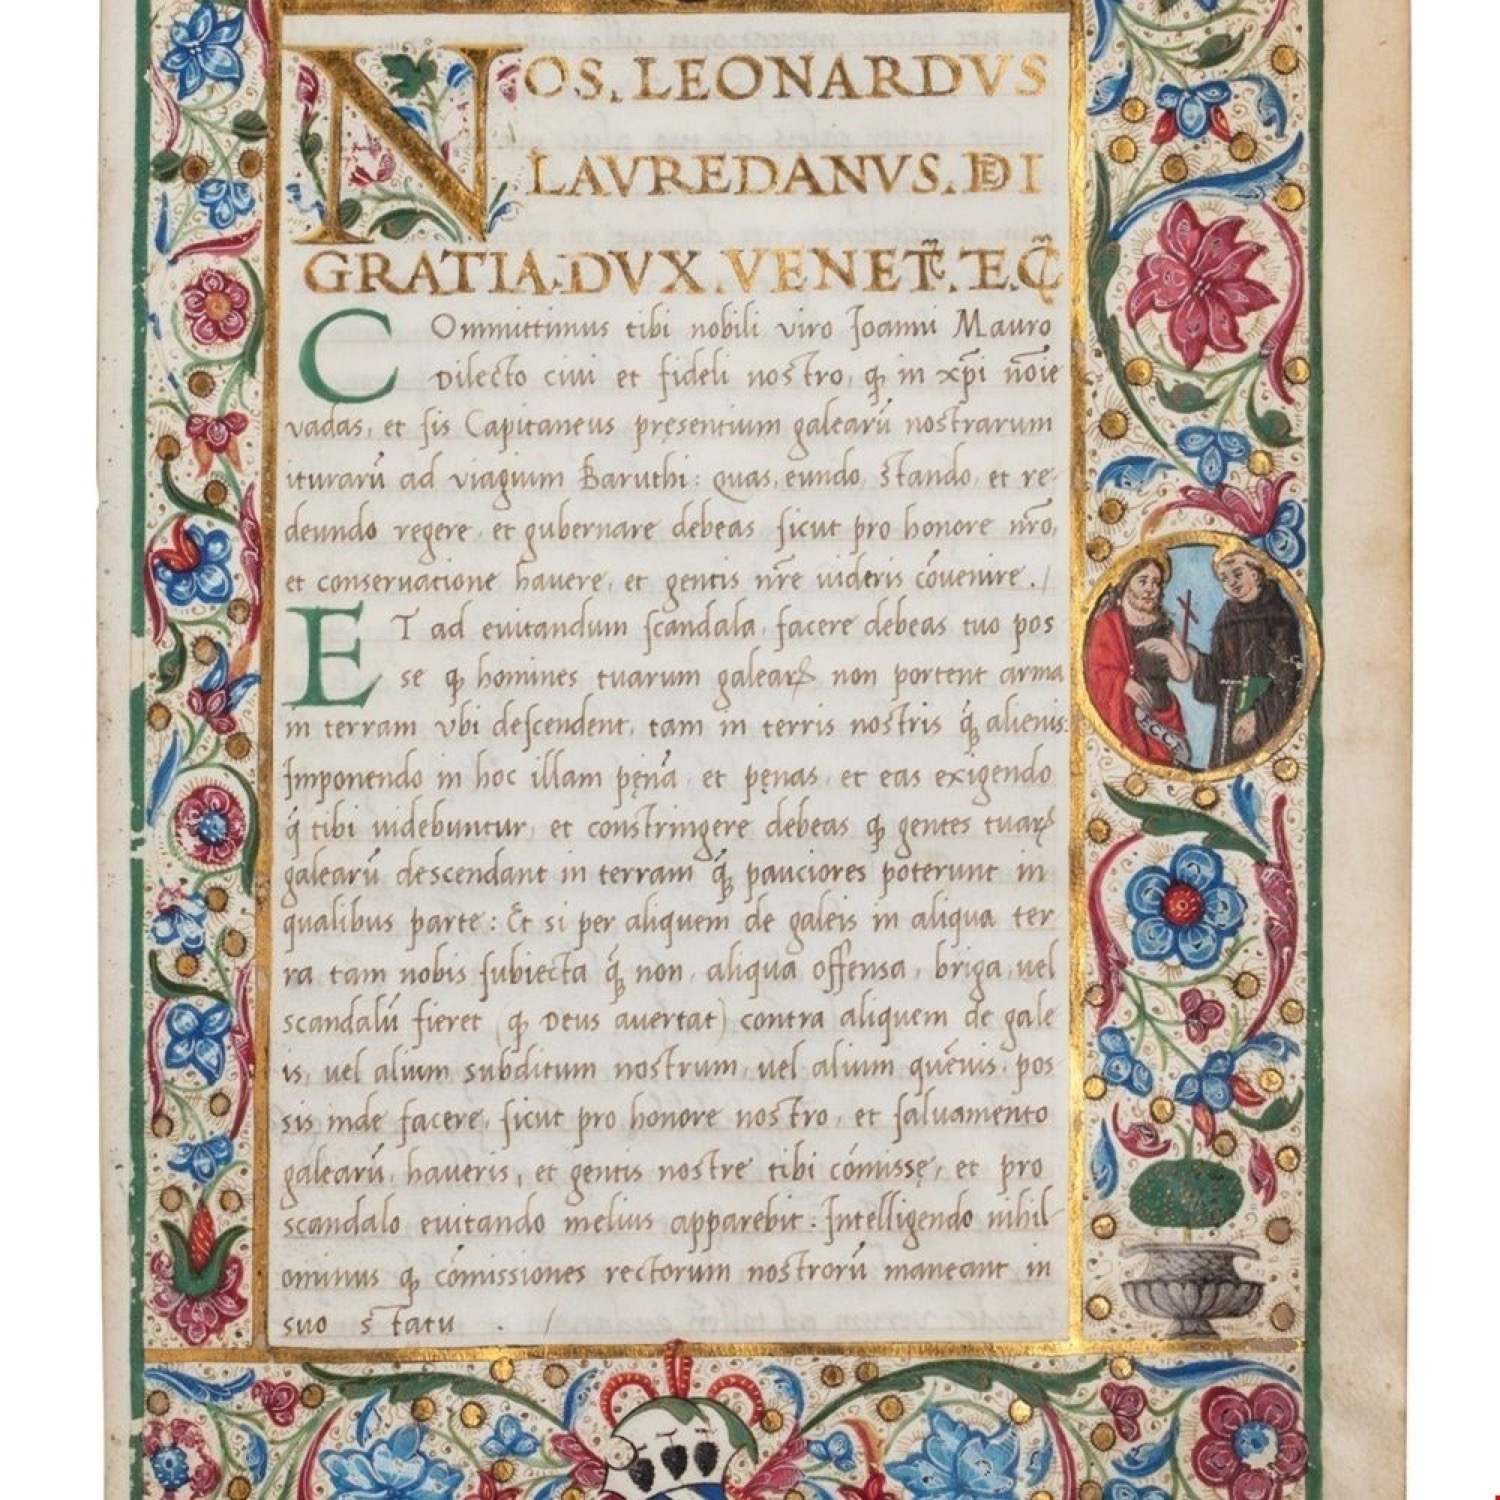 NOS. LEONARDVS
LAVREDANVS. DEI
GRATIA. DVX. VENET. E. C̃
COmmittimus tibi nobili viro Ioanni Mauro
Dilecto ciui et fideli nostro, ꝙ in xp̄i nōie
vadas, et sis Capitaneus pręsentium galearū nostrarum
iturarū ad viagium Baruthi: quas, eundo, stando, et re-
deundo regere, et gubernare debeas sicut pro honore nr̄o,
et conseruatione hauere, et gentis nr̄e uideris cōuenire. /
ET ad euitandum scandala, facere debeas tuo pos
se ꝙ homines tuarum galearꝝ non portent arma
in terram vbi descendent, tam in terris nostris q̄ꝫ alienis:
Imponendo in hoc illam pęnā, et pęnas, et eas exigendo
q̄ tibi uidebuntur, et constringere debeas ꝙ gentes tuarꝝ
galearū descendant in terram q̄ꝫ pauciores poterunt in
qualibus parte: Et si per aliquem de galeis in aliqua ter
ra tam nobis subiecta q̄ꝫ non, aliqua offensa, briga, uel
scandalū fieret (ꝙ Deus auertat) contra aliquem de gale
is, uel alium subditum nostrum, uel alium quēuis, pos
sis inde facere, sicut pro honore nostro, et saluamento
galearū, haueris, et gentis nostre tibi cōmissę, et pro
scandalo euitando melius apparebit: Intelligendo nihil-
ominus ꝙ cōmissiones rectorum nostrorū maneant in
suo statu . /
ECCE